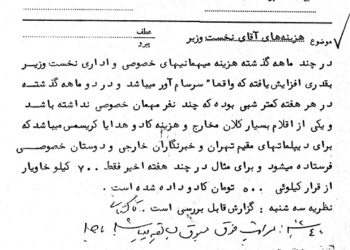 عطف
موضوع هزینه‌های آقای نخست وزیر پیرو
در چند ماهه گذشته هزینه میهمانیهای خصوصی و اداری نخست وزیر
بقدری افزایش یافته که واقعا" سرسام آور میباشد و در دو ماهه گذشته
در هر هفته کمتر شبی بوده که چند نفر مهمان خصوصی نداشته باشد
و یکی از اقلام بسیار کلان مخارج و هزینه کادو هدایا کریسمس میباشد که
برای دیپلماتهای مقیم تهران و خبرنگاران خارجی و دوستان خصوصی
فرستاده میشود و برای مثال در چند هفته اخیر فقط ۷۰۰ کیلو خاویار
از قرار کیلوئی ۵۰۰ تومان کادو داده شده است .
نظریه سه شنبه : گزارش قابل بررسی است .
مراتب فوق